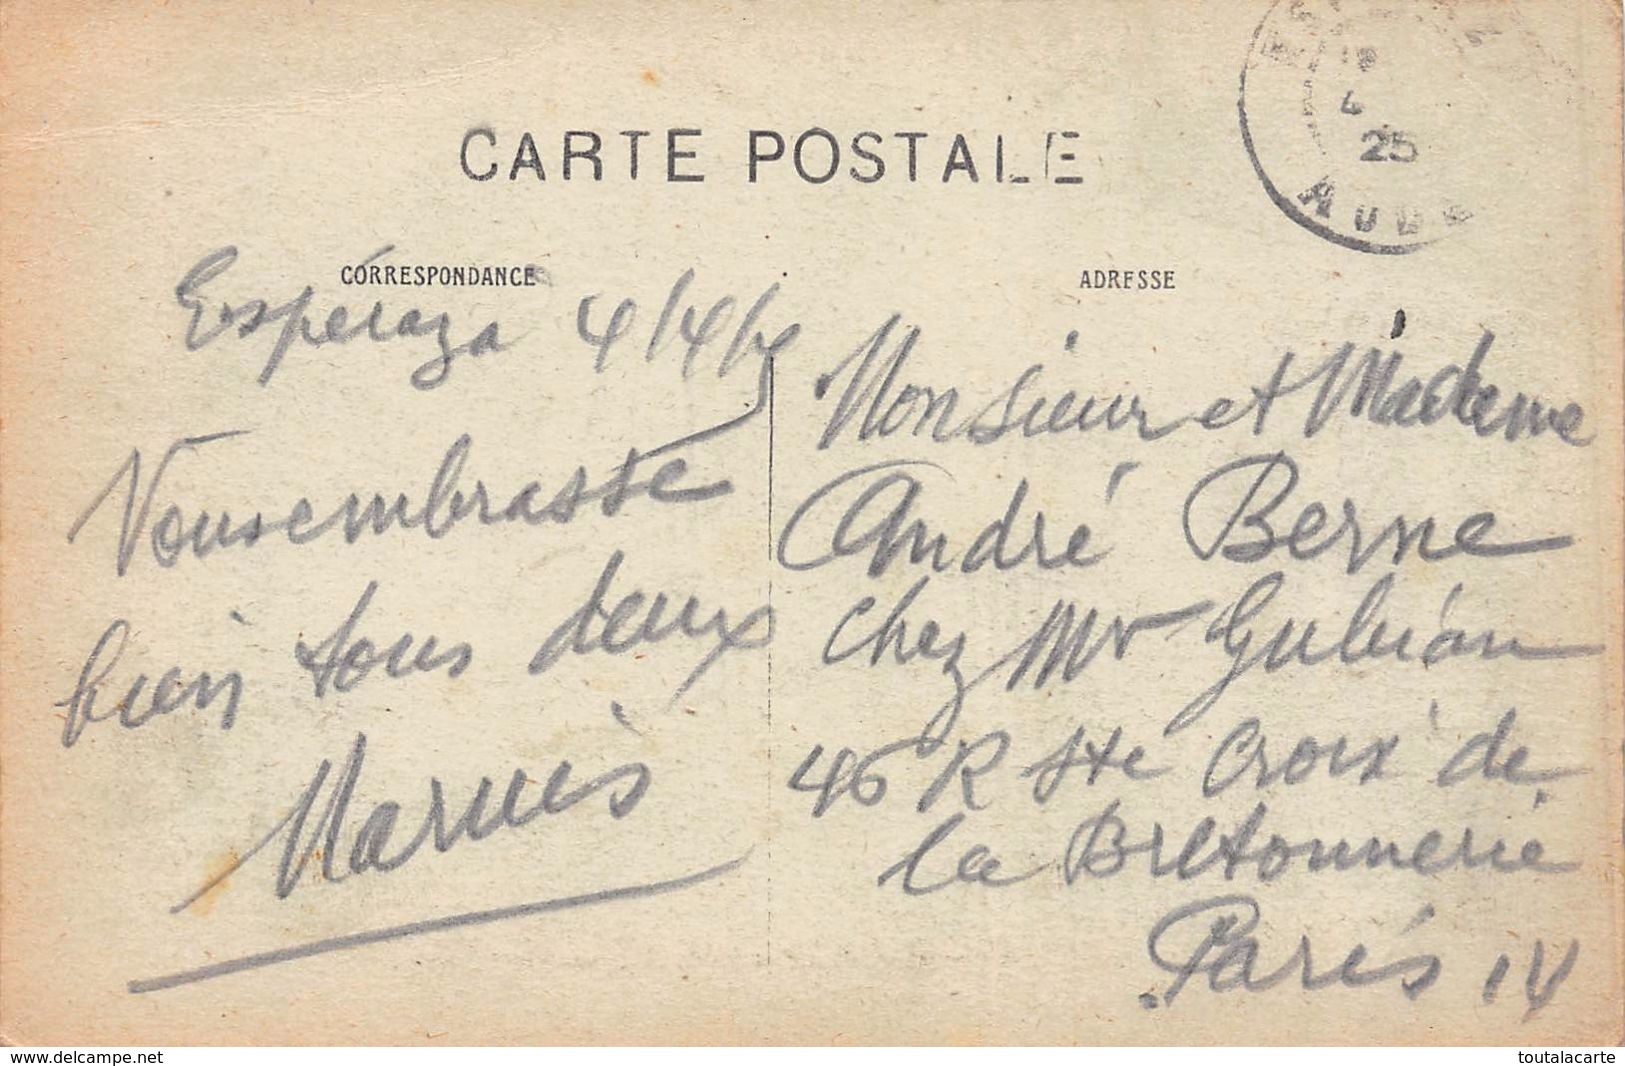 CARTE POSTALE
4
25
AUDE
CORRESPONDANCE
ADRESSE
Espéraza 4/4/25
Vous embrasse
bien tous deux
Marius
Monsieur et Madame
André Berne
chez Mr
46 R Ste Croix de
la Bretonnerie
Paris IV
www.delcampe.net
toutalacarte